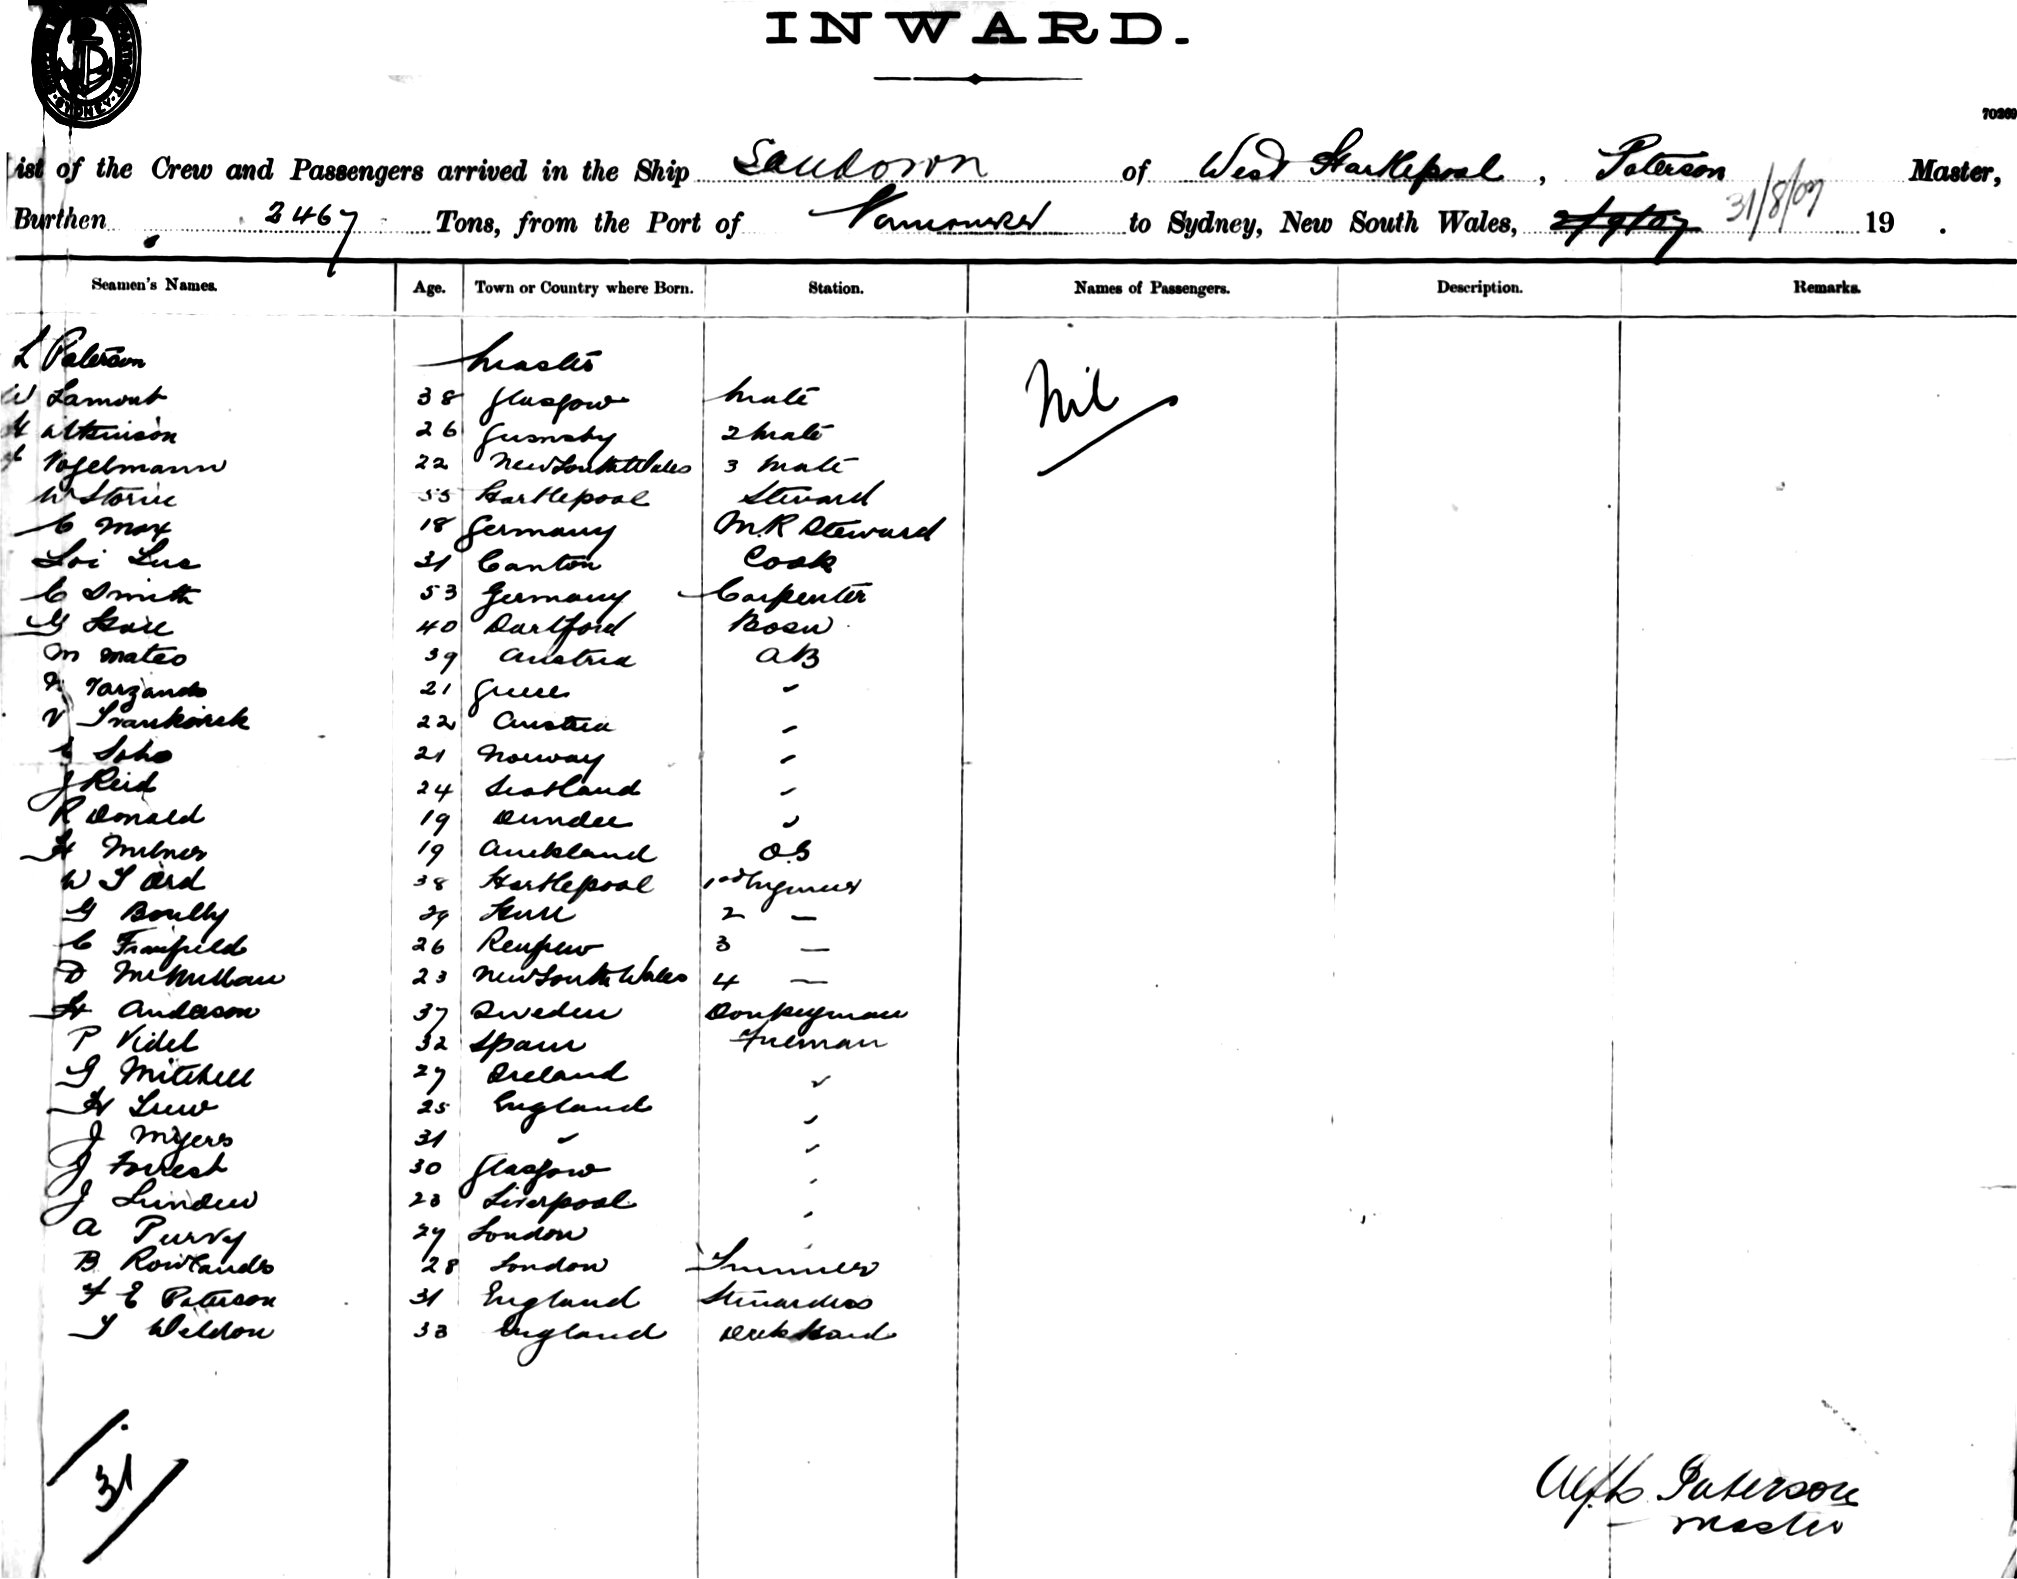 INWARD.
70260
ist of the Crew and Passengers arrived in the Ship Sandown of West Hartlepool, Paterson Master,
Burthen 3467 Tons, from the Port of Vancouver to Sydney, New South Wales, 2/9/07 31/8/07 19 .
Seamen's Names. Age. Town or Country where Born. Station. Names of Passengers. Description. Remarks.
L Paterson Master
W Lamont 38 Glasgow Mate Nil
H Atkinson 26 Grimsby 2 Mate
Vogelmann 22 New South Wales 3 Mate
W Storie 55 Hartlepool Steward
C Max 18 Germany M.R Steward
Loi Lue 31 Canton Cook
C Smith 53 Germany Carpenter
G Hall 40 Dartford Bosn
M Mateo 39 Austria AB
21 Greece "
V 22 Austria "
Soho 21 Norway "
J Reid 24 Scotland "
R Donald 19 Dundee "
H Milner 19 Auckland O.S
W T Ord 38 Hartlepool 1st Engineer
G Boully 29 Hull 2 —
C Fairfield 26 Renfrew 3 —
D McMillan 23 New South Wales 4 —
H Anderson 37 Sweden Donkeyman
P Videl 32 Spain Fireman
G Mitchell 27 Ireland "
H 25 England "
J Myers 31 " "
J Forrest 30 Glasgow "
J Linden 23 Liverpool "
A Purvy 27 London "
B Rowlands 28 London Trimmer
F E Paterson 31 England Stewardess
T Weldon 33 England Deck Hand
31
Paterson
Master